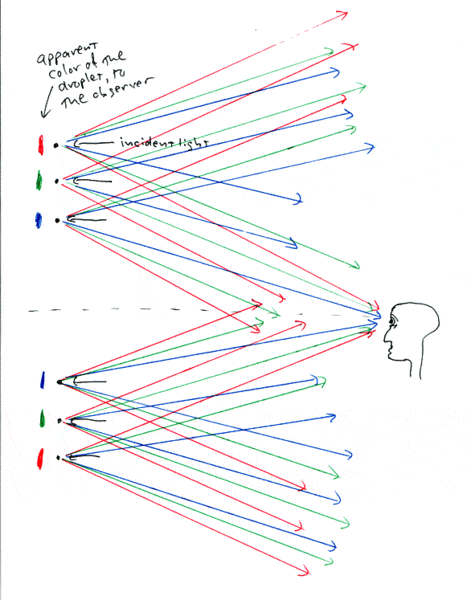 apparent
color of the
droplet, to
the observer
incident light